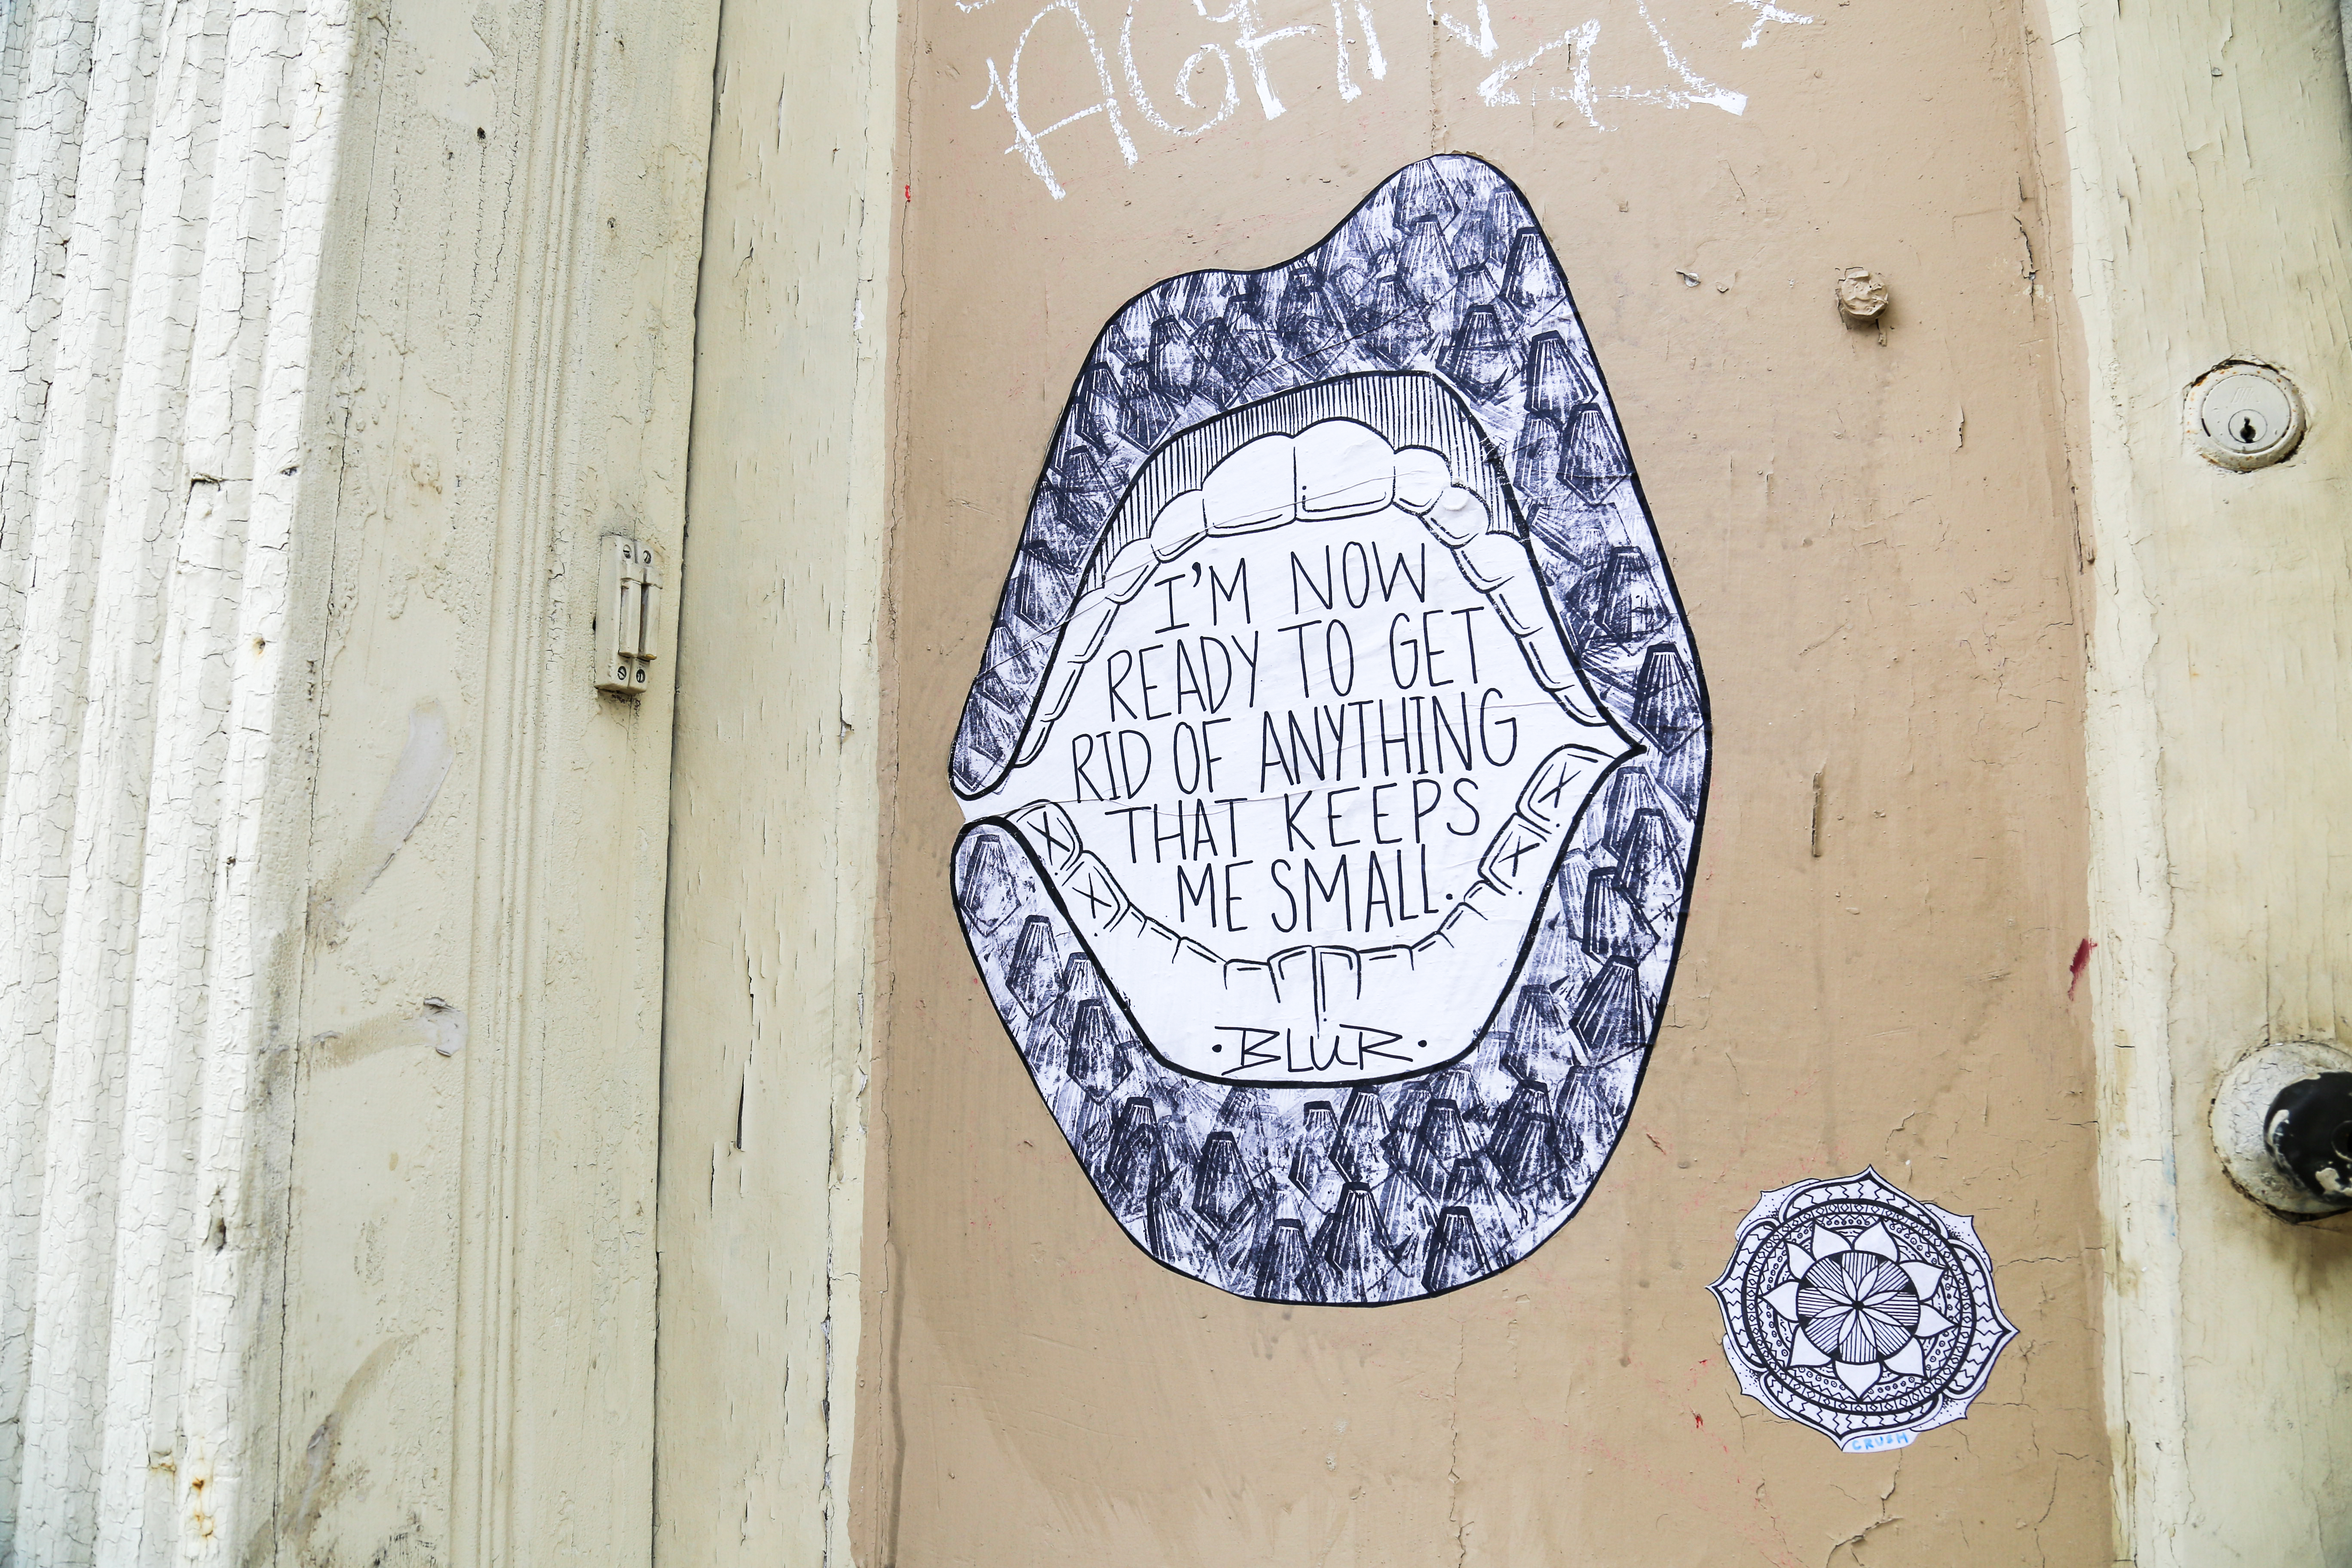 I'M NOW
READY TO GET
RID OF ANYTHING
THAT KEEPS
ME SMALL.
·BLUR·
CRUSH